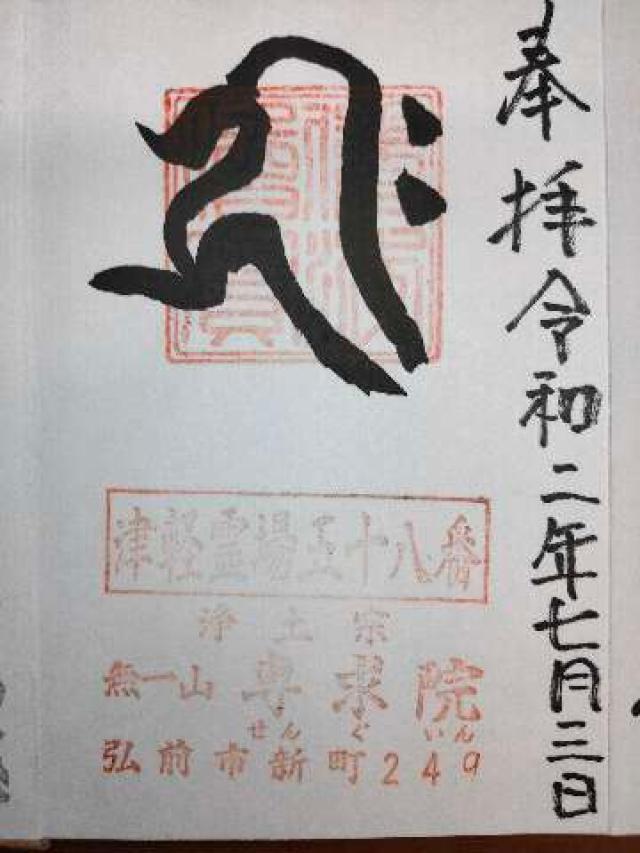 奉拝令和二年七月三日
津軽霊場五十八番
浄土宗
無一山専求院
せんぐいん
弘前市新町249